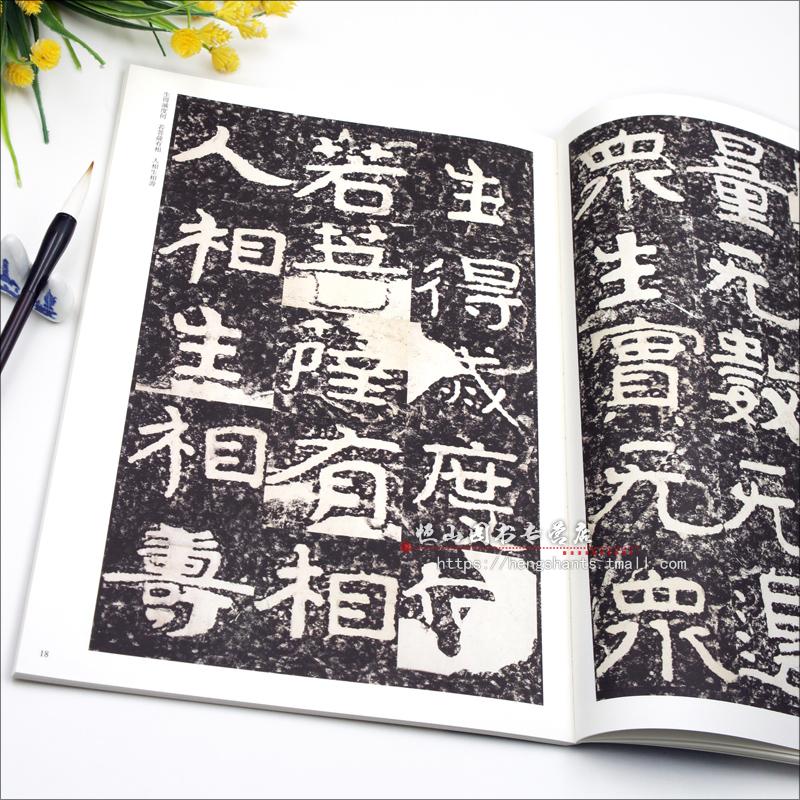 量无數无邊
衆生實无衆
生得烕度何
若菩薩有相
人相生相壽
生得滅度何　若菩薩有相　人相生相壽
18
恒山图书专营店
https://hengshants.tmall.com